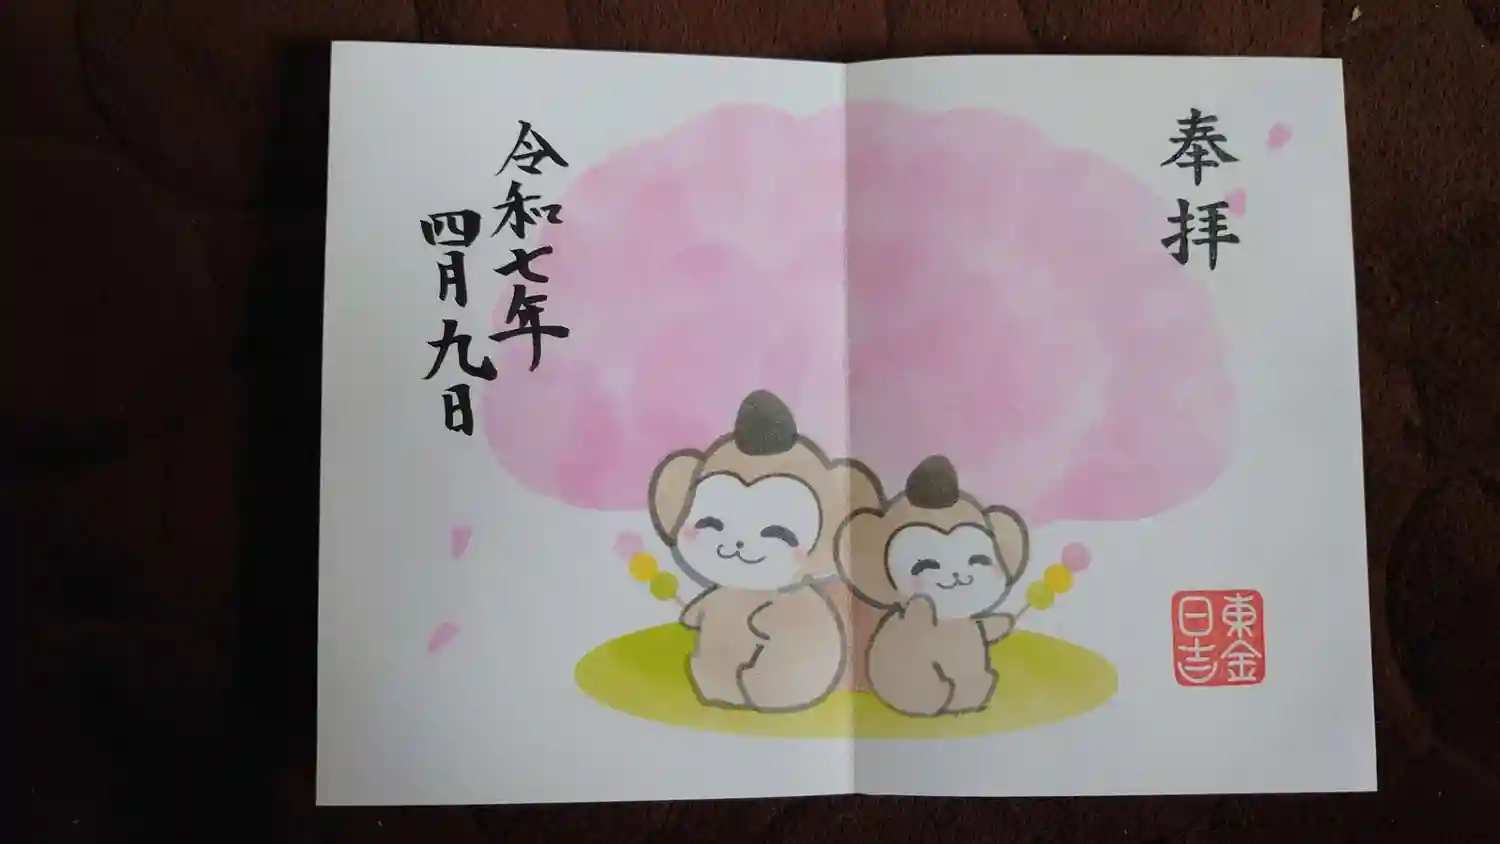 奉拝
東金
日吉
令和七年
四月九日